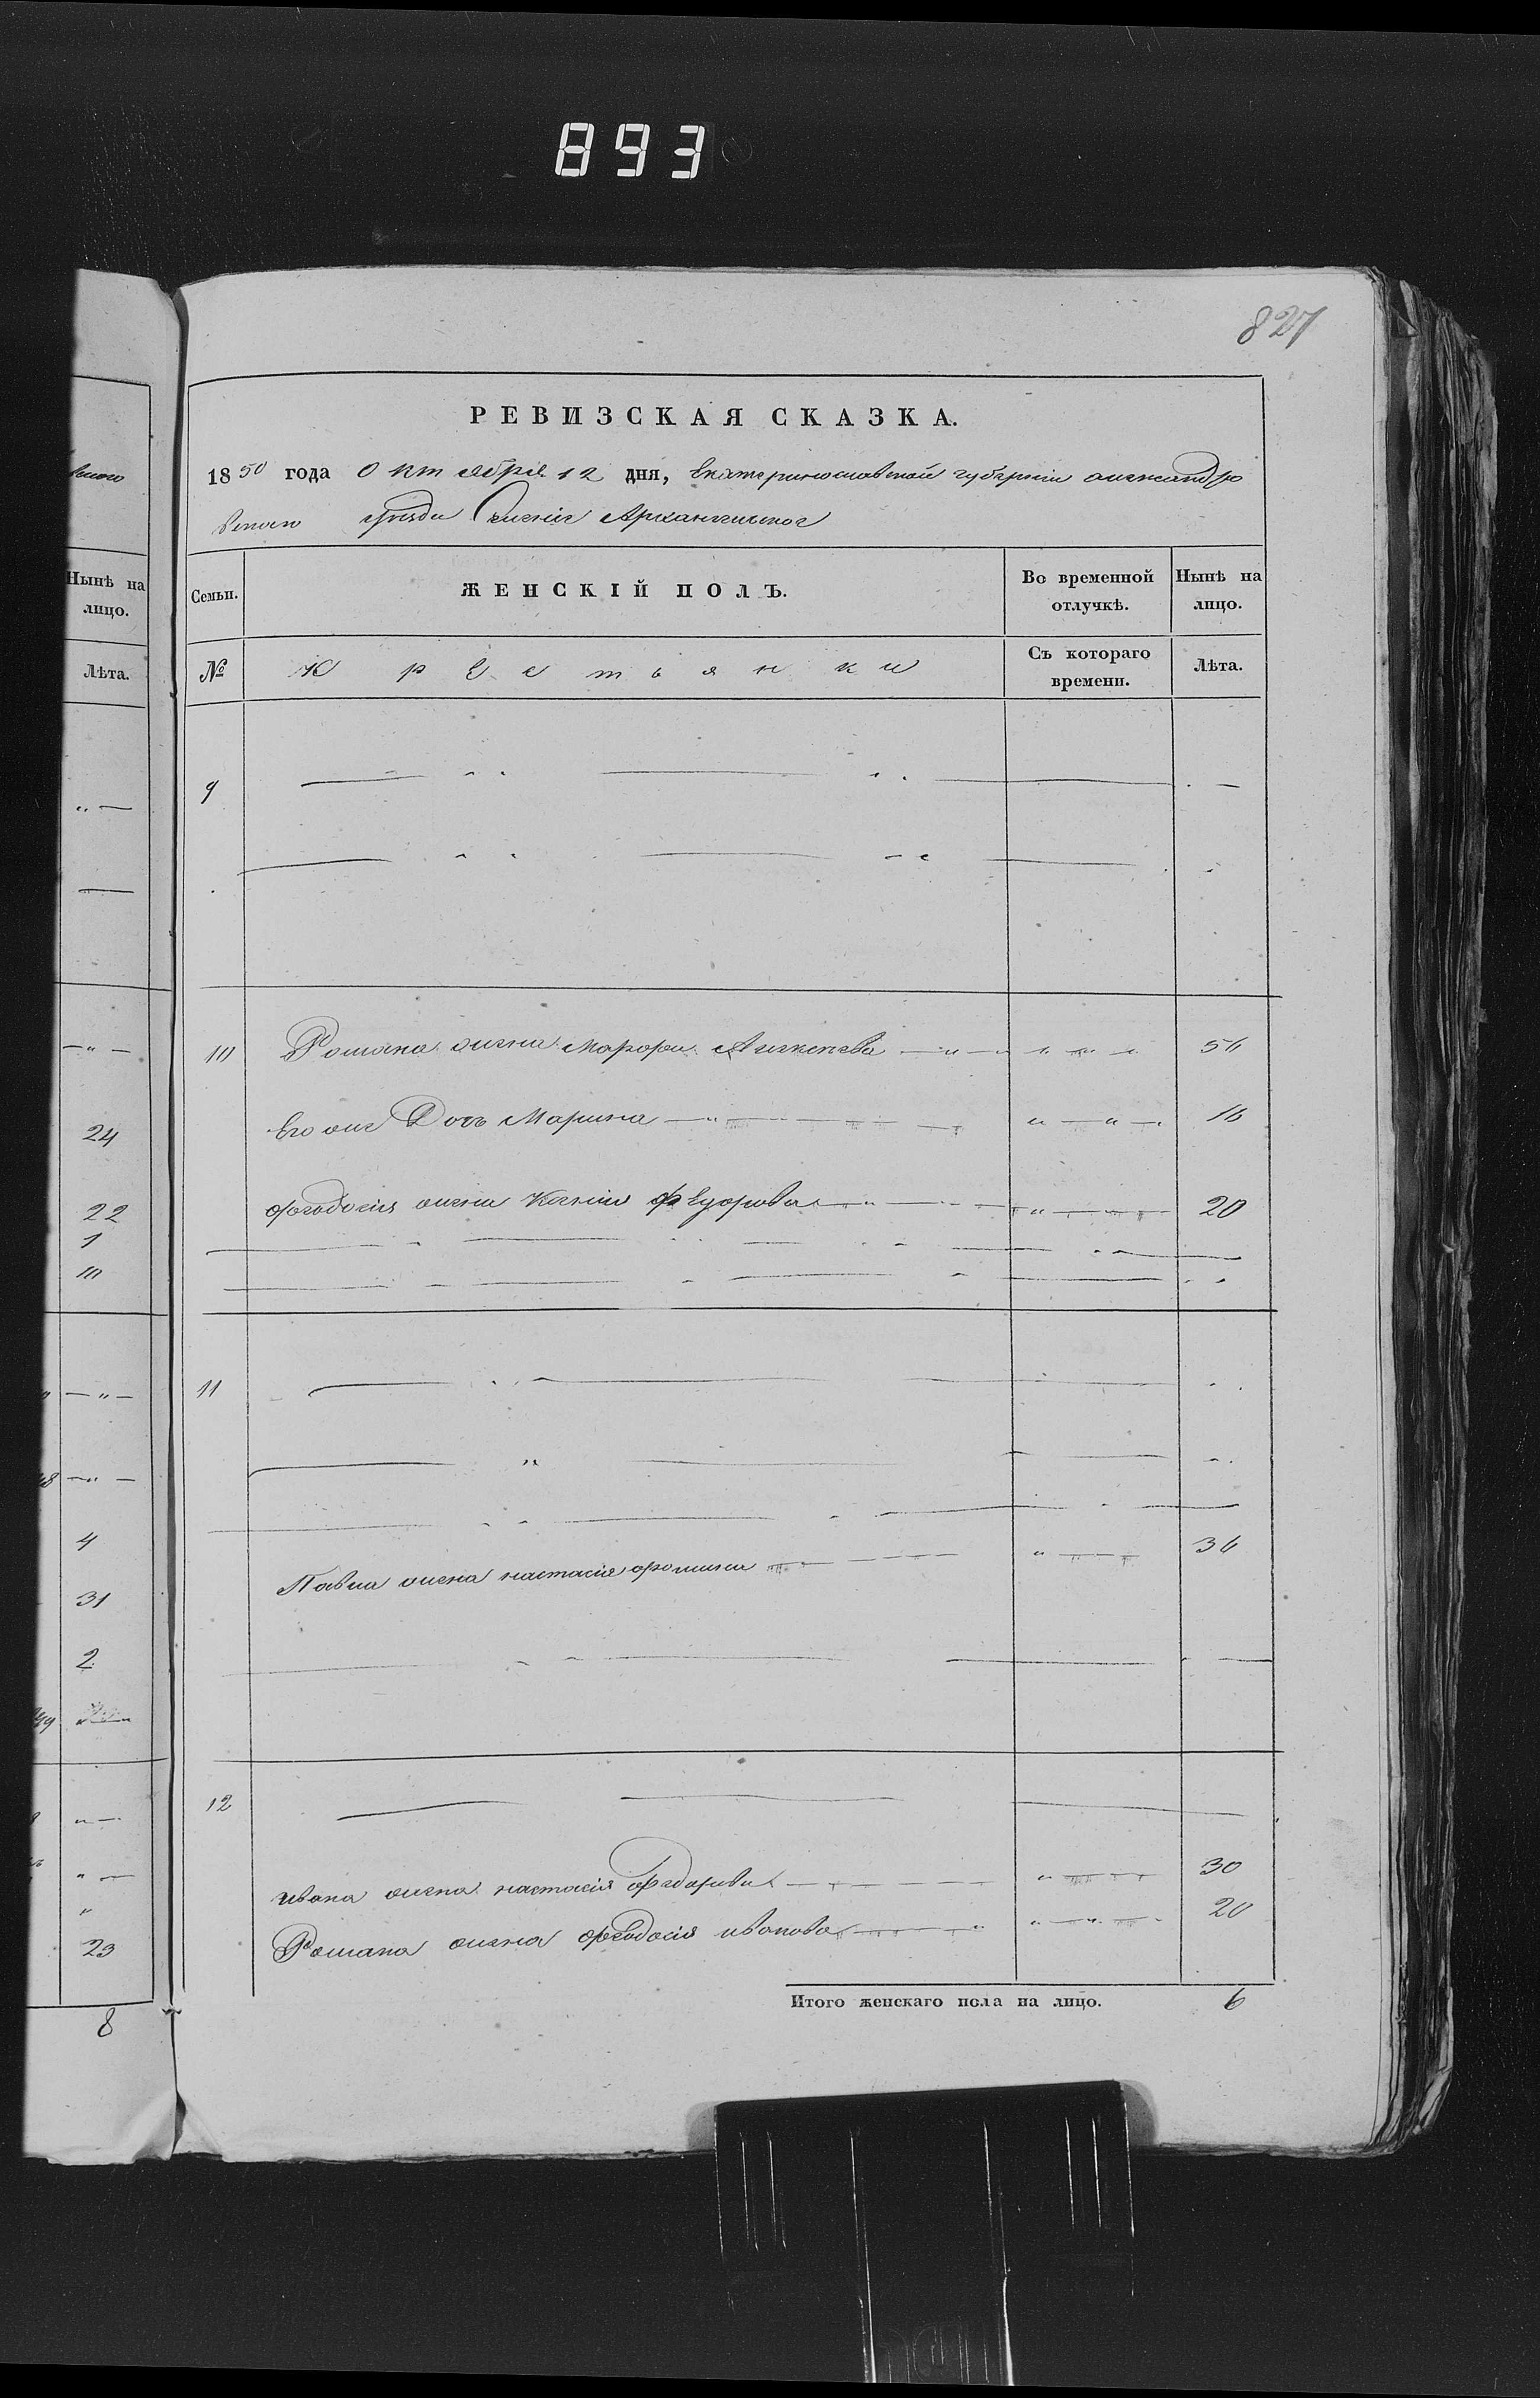 893
827
РЕВИЗСКАЯ СКАЗКА.
1850 года Октября 12 дня, Екатеринославской губернии александро
вскаго уезда Архангельское
Нынѣ на
лицо.
Лѣта.
Семьи.
ЖЕНСКІЙ ПОЛЪ.
Во временной
отлучкѣ.
Нынѣ на
лицо.
№
Крестьянки
Съ котораго
времени.
Лѣта.
9
10 Романа жена Марфа 56
Его же Дочь Марина 16
феодосия жена Ксения федорова 20
11
Павла жена настасия фомина 36
12
ивана жена настасия федорова 30
Романа жена феодосия иванова 20
Итого женскаго пола на лицо. 6
24
22
1
10
4
31
2
23
8